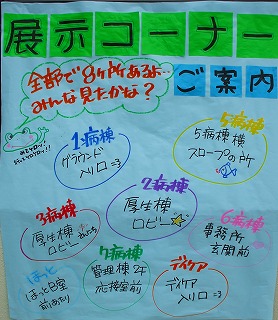 展示コーナー
ご案内
全部で8ヶ所あるよ…
みんな見たかな?
1病棟
グラウンド
入り口=3
5病棟
5病棟横
スロープの所
2病棟
厚生棟
ロビー
3病棟
厚生棟
ロビー
6病棟
事務所
玄関前
7病棟
管理棟2F
応接室前
デイケア
デイケア
入り口=3
ほっと
ほっとB室
前あたり